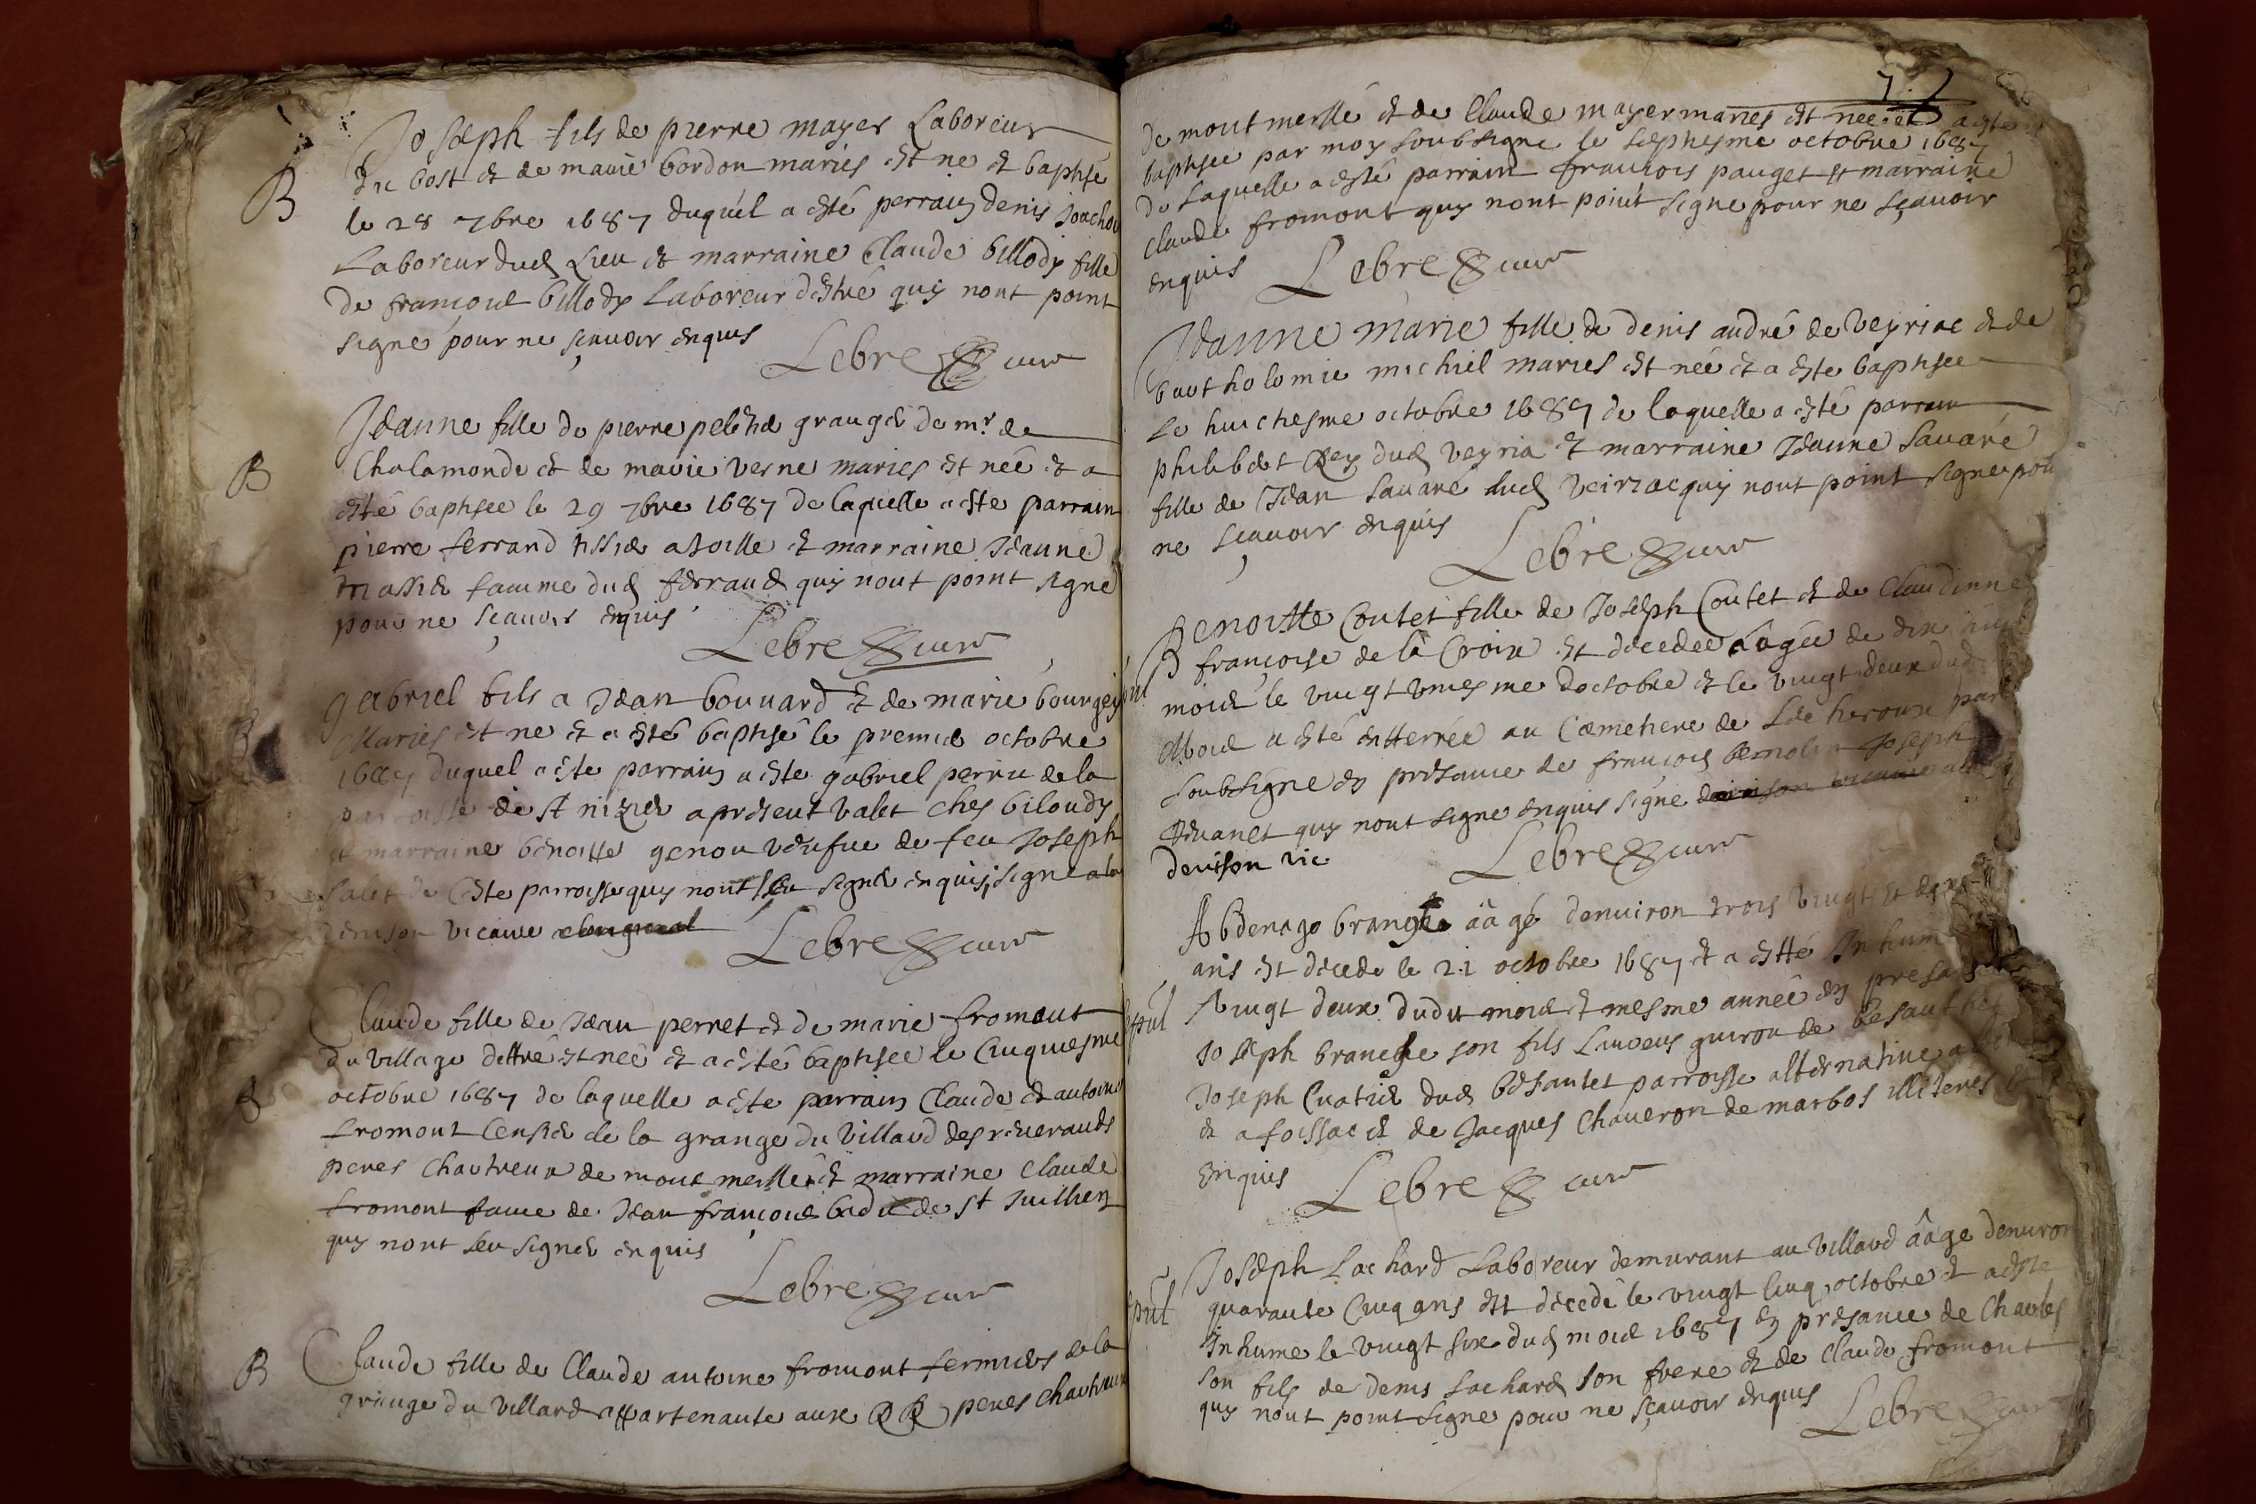 Joseph fils de pierre mayer Laboreur
B
du bost et de marie bordon mariés est né et baptisé
le 28 7bre 1687 duquel a esté perrain denis Jouchou
Laboreur dud Lieu et marraine Claude billody fille
de francois billody Laboreur destré quy nont point
signé pour ne sçavoir enquis
Lebre curé
Jeanne fille de pierre grangé de mr de
B
Chalamonde et de marie verne mariés est née et a
esté baptisée le 29 7bre 1687 de laquelle a esté parrain
pierre ferrand tissier a et marraine Jeanne
massie famme dud ferrand quy nont point signé
pour ne sçavoir enquis
Lebre curé
gabriel fils a Jean bouvard et de marie bourgey
B
Mariés est né et a esté baptisé le premier octobre
1687 duquel a este parrain a este gabriel perru de la
parroisse de st nizier apresent valet ches biloudy
et marraine benoitte genou veufue de feu Joseph
salet de Ceste parroisse quy nont sceu signer enquis, signé a la
denison vicaire
Lebre curé
Claude fille de Jean perret et de marie fromont
du village dettré est née et a esté baptisée le Cinquiesme
B
octobre 1687 de laquelle a este parrain Claude et antoine
fromont Censier de la grange du Villard des reverands
peres Chartreux de mont merlle et marraine Claude
fromont fame de Jean francois badu de st Jullien
quy nont sceu signer enquis
Lebre curé
B
Claude fille de Claude antoine fromont fermiers de la
grange du Villard appartenante aux RR peres Chartreux
7
de mont merlle et de Claude mayer mariés est née et a esté
baptisee par moy soubsigne le septiesme octobre 1687
de laquelle a esté parrain francois pauget et marraine
claude fromont quy nont point signe pour ne sçavoir
enquis
Lebre curé
Jeanne marie fille de denis andré de veyriac et de
bartholomie michiel mariés est née et a este baptisee
Le huictiesme octobre 1687 de laquelle a esté parrain
philebert Rey dud veyria et marraine Jeanne Savaré
fille de Jean Savaré dud veiriac quy nont point signe pour
ne sçavoir enquis
Lebre curé
Benoitte Coutet fille de Joseph Coutet et de Claudinne
françoise de la Croix est décédée aagée de dix huit
mois le vingt uniesme doctobre et le vingt deux dud
Mois a esté entterrée au Cæmetiere de par
soubsigne en presance de françois Joseph
quy nont signe enquis signe
denison vic
Lebre curé
Abdenago branche aagé denviron trois vingt et
ans est décede le 21 octobre 1687 et a estté Inhumé
vingt deux dudit mois et mesme année en presance
Joseph branche son fils Laurens guiron de
Joseph Cuatier dud besantet parroisse alternative
et a foissiac et de Jacques Chaveron de marbos illiteres
enquis
Lebre curé
Joseph Lachard Laboreur demurant au Villard aage denviron
quarante Cinq ans est décédé le vingt Cinq octobre et a este
Inhume le vingt six dud mois 1687 en presance de Charles
son fils de denis Lachard son frere et de Claude fromont
quy nont point signe pour ne sçavoir enquis
Lebre curé